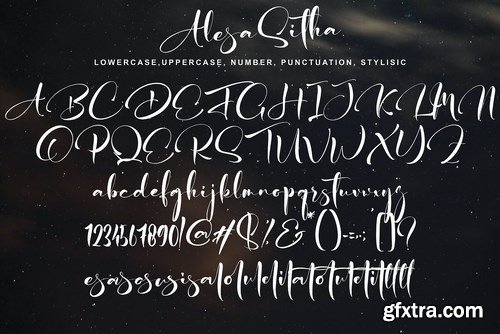 AlesaSitha
LOWERCASE,UPPERCASE, NUMBER, PUNCTUATION, STYLISIC
ABCDEFGHIJKLMN
OPQRSTUVWXYZ
abcdefghijklmnopqrstuvwxyz
1234567890!@#$%&*()-=.,:;[]?
gfxtra.com